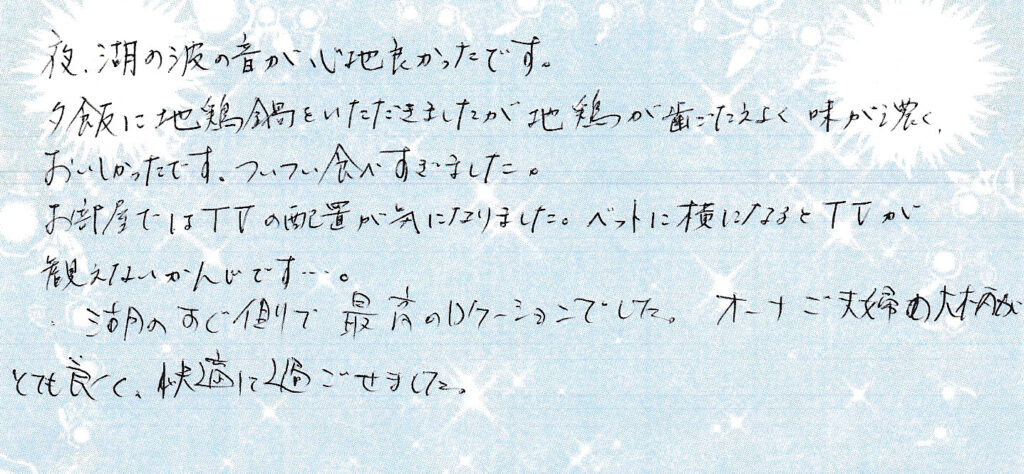 夜、湖の波の音が心地良かったです。
夕飯に地鶏鍋をいただきましたが地鶏が歯ごたえよく味が濃く、
おいしかったです。ついつい食べすぎました。
お部屋ではTVの配置が気になりました。ベットに横になるとTVが
観えないかんじです…。
湖のすぐ側りで最高のロケーションでした。オーナーご夫婦も
とても良く、快適に過ごせました。